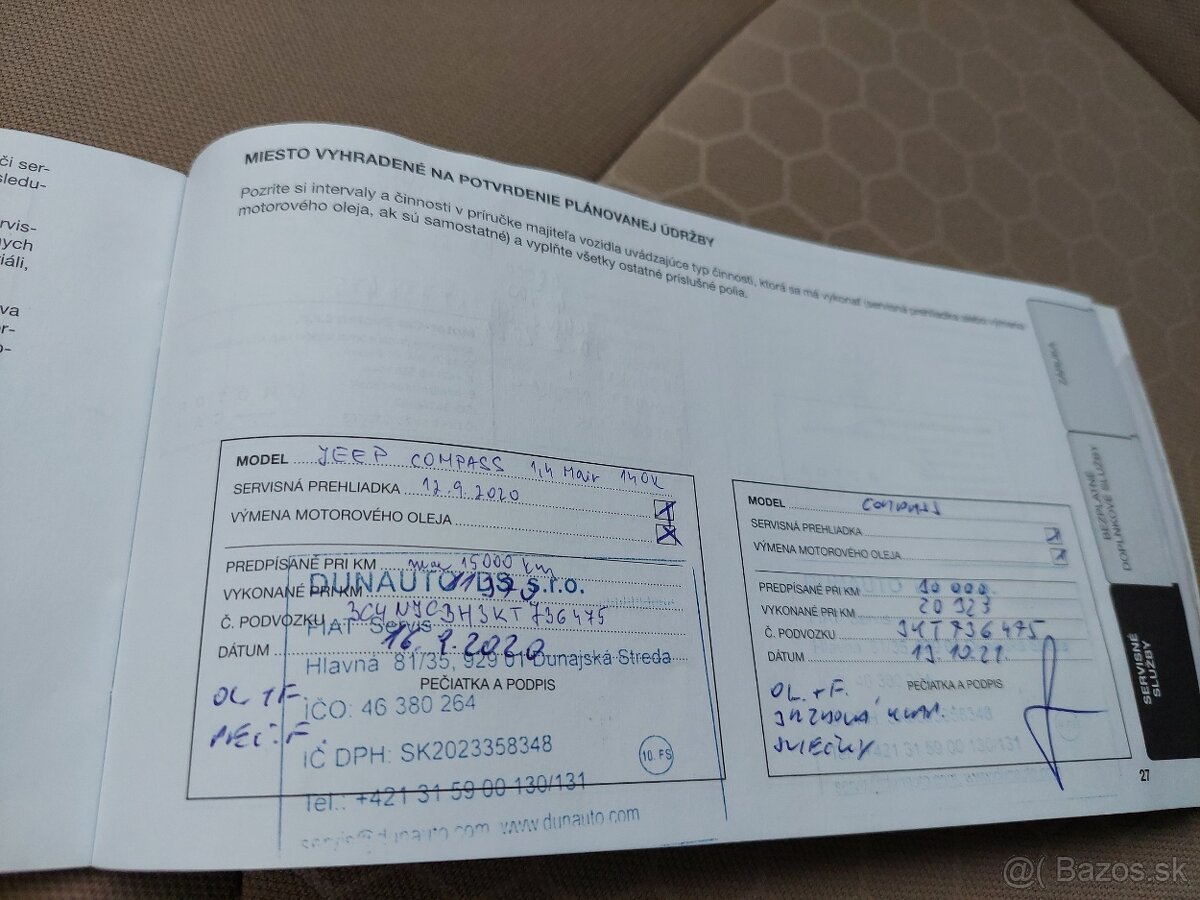 či ser-
sledu-
rvis-
ých
iáli,
va
or-
o-
MIESTO VYHRADENÉ NA POTVRDENIE PLÁNOVANEJ ÚDRŽBY
Pozrite si intervaly a činnosti v príručke majiteľa vozidla uvádzajúce typ činnosti, ktorá sa má vykonať (servisná prehliadka alebo výmena
motorového oleja, ak sú samostatné) a vyplňte všetky ostatné príslušné polia.
ZÁRUKA
BEZPLATNÉ
DOPLNKOVÉ SLUŽBY
SERVISNÉ
SLUŽBY
MODEL JEEP COMPASS 1,4 Mair 140k
SERVISNÁ PREHLIADKA 12.9.2020
VÝMENA MOTOROVÉHO OLEJA
PREDPÍSANÉ PRI KM max 15000 km
DUNAUTO DS s.r.o.
VYKONANÉ PRI KM
Č. PODVOZKU 3C4NJCBH3KT736475
FIAT Servis
DÁTUM 16.9.2020
Hlavná 81/35, 929 01 Dunajská Streda
PEČIATKA A PODPIS
OL + F.
IČO: 46 380 264
IČ DPH: SK2023358348
10. FS
Tel.: +421 31 59 00 130/131
servis@dunauto.com www.dunauto.com
MODEL COMPASS
SERVISNÁ PREHLIADKA
VÝMENA MOTOROVÉHO OLEJA
PREDPÍSANÉ PRI KM
VYKONANÉ PRI KM 20 323
Č. PODVOZKU 3KT736475
DÁTUM 13.10.21.
PEČIATKA A PODPIS
OL. + F.
SVIEČKY
+421 31 59 00 130/131
27
@( Bazos.sk